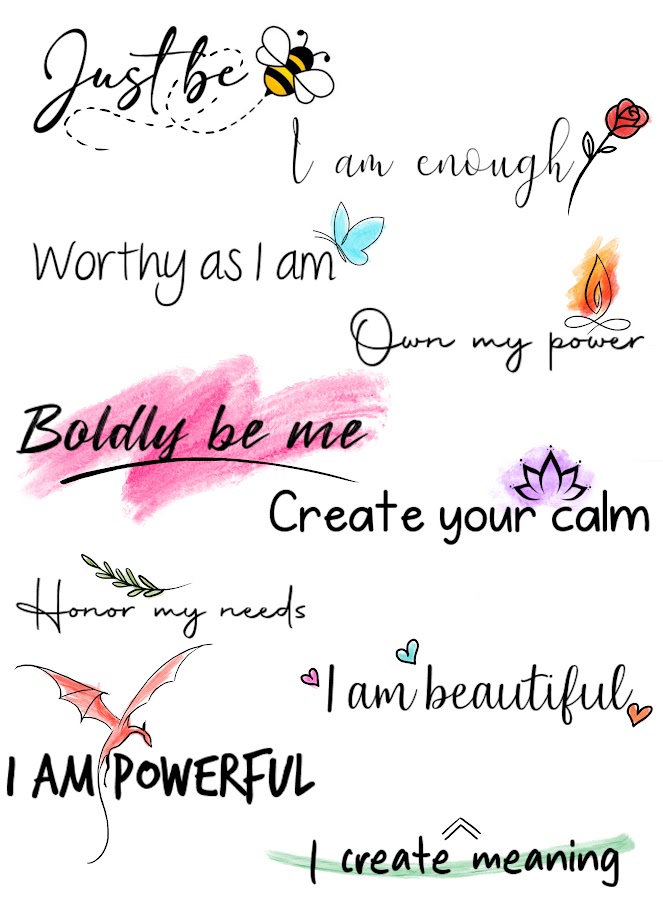 Just be
I am enough
Worthy as I am
Own my power
Boldly be me
Create your calm
Honor my needs
I am beautiful
I AM POWERFUL
I create meaning